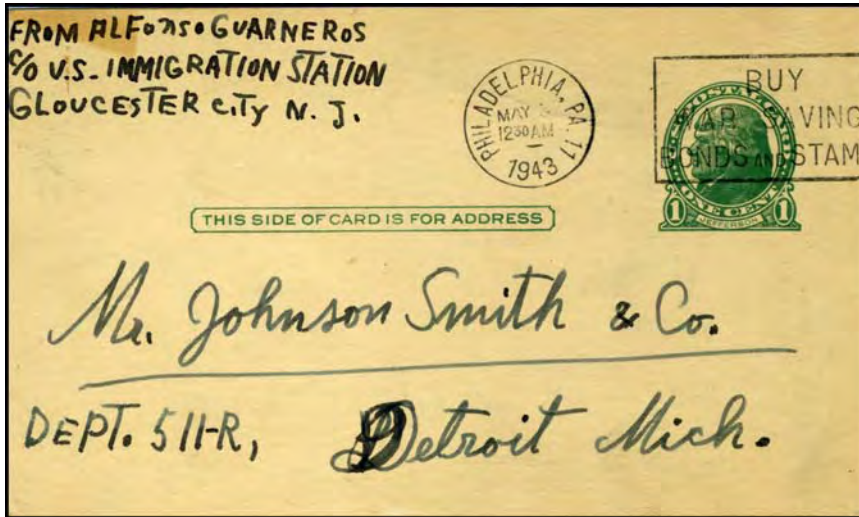 FROM ALFONSO GUARNEROS
c/o U.S. IMMIGRATION STATION
GLOUCESTER CITY N. J.
PHILADELPHIA, PA. 11
MAY
12 30 AM
1943
BUY
WAR SAVING
BONDS AND STAM
U.S. POSTAL CARD
ONE CENT
1 JEFFERSON 1
THIS SIDE OF CARD IS FOR ADDRESS
Mr. Johnson Smith & Co.
DEPT. 511-R, Detroit Mich.